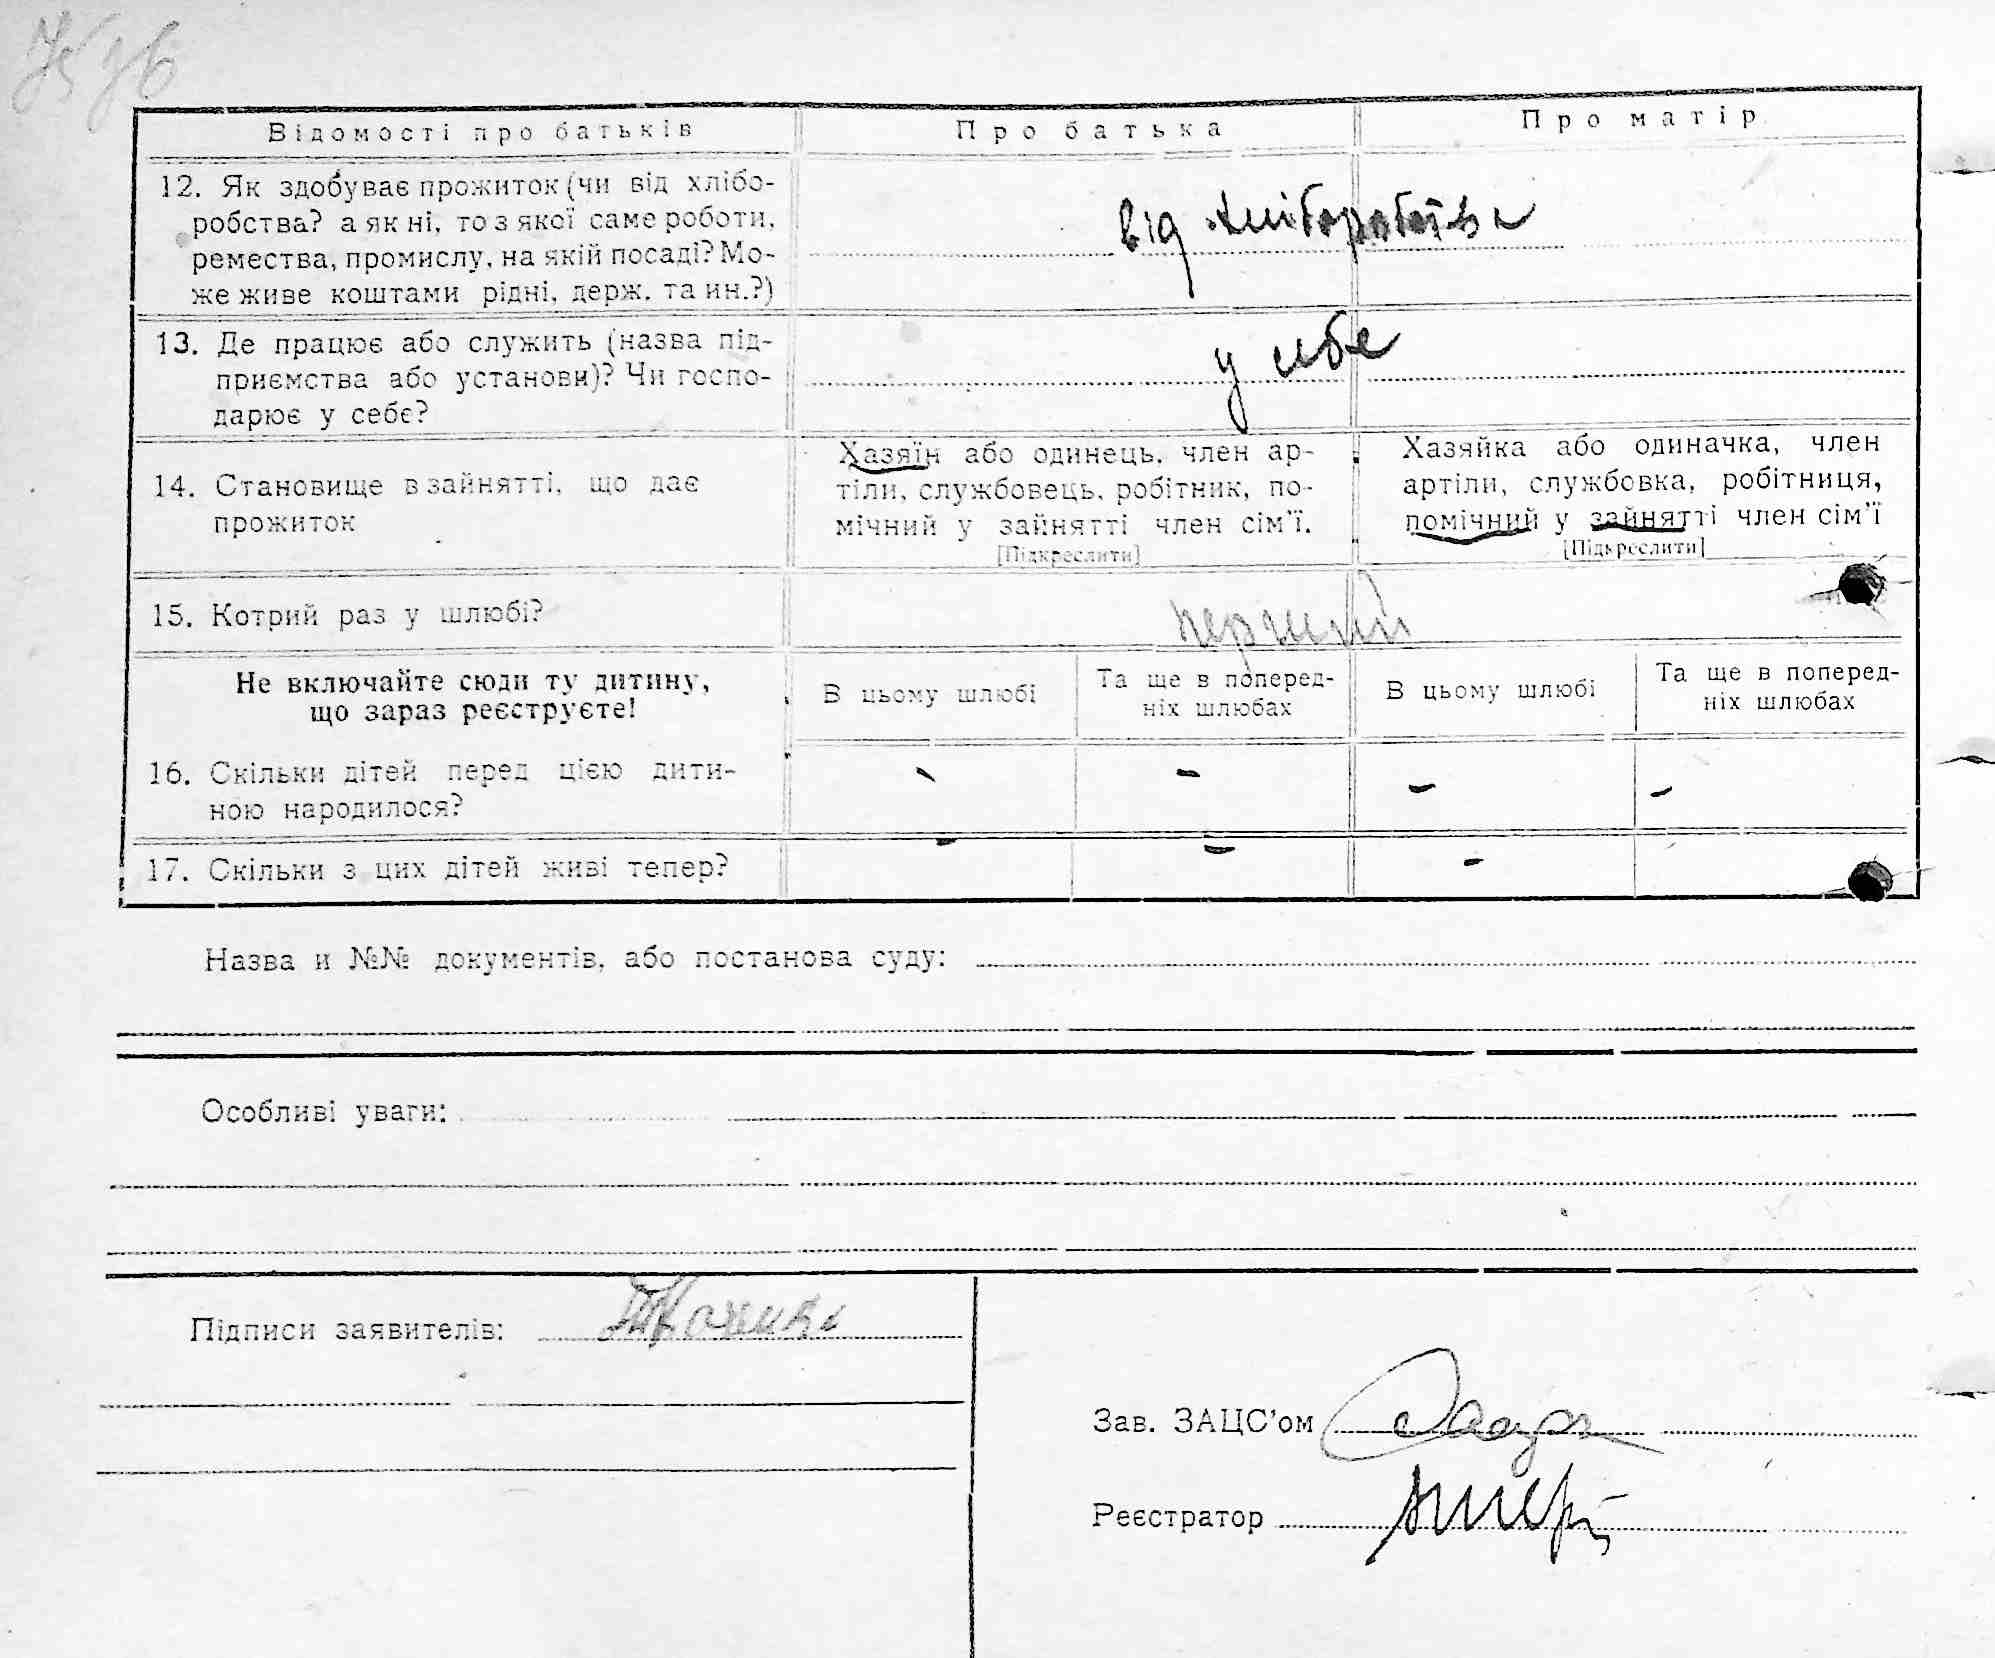 Відомості про батьків Про батька Про матір
12. Як здобуває прожиток (чи від хлібо-
робства? а як ні, то з якої саме роботи,
ремества, промислу, на якій посаді? Мо-
же живе коштами рідні, держ. та ин.?)
від хліборобства
13. Де працює або служить (назва під-
приємства або установи)? Чи госпо-
дарює у себе?
у себе
14. Становище в зайнятті, що дає
прожиток
Хазяїн або одинець, член ар-
тіли, службовець, робітник, по-
мічний у зайнятті член сім'ї.
[Підкреслити]
Хазяйка або одиначка, член
артіли, службовка, робітниця,
помічний у зайнятті член сім'ї
[Підкреслити]
15. Котрий раз у шлюбі?
перший
Не включайте сюди ту дитину,
що зараз реєструєте!
В цьому шлюбі
Та ще в поперед-
ніх шлюбах
В цьому шлюбі
Та ще в поперед-
ніх шлюбах
16. Скільки дітей перед цією дити-
ною народилося?
- - - -
17. Скільки з цих дітей живі тепер?
- - -
Назва и №№ документів, або постанова суду:
Особливі уваги:
Підписи заявителів:
Зав. ЗАЦС'ом
Реєстратор